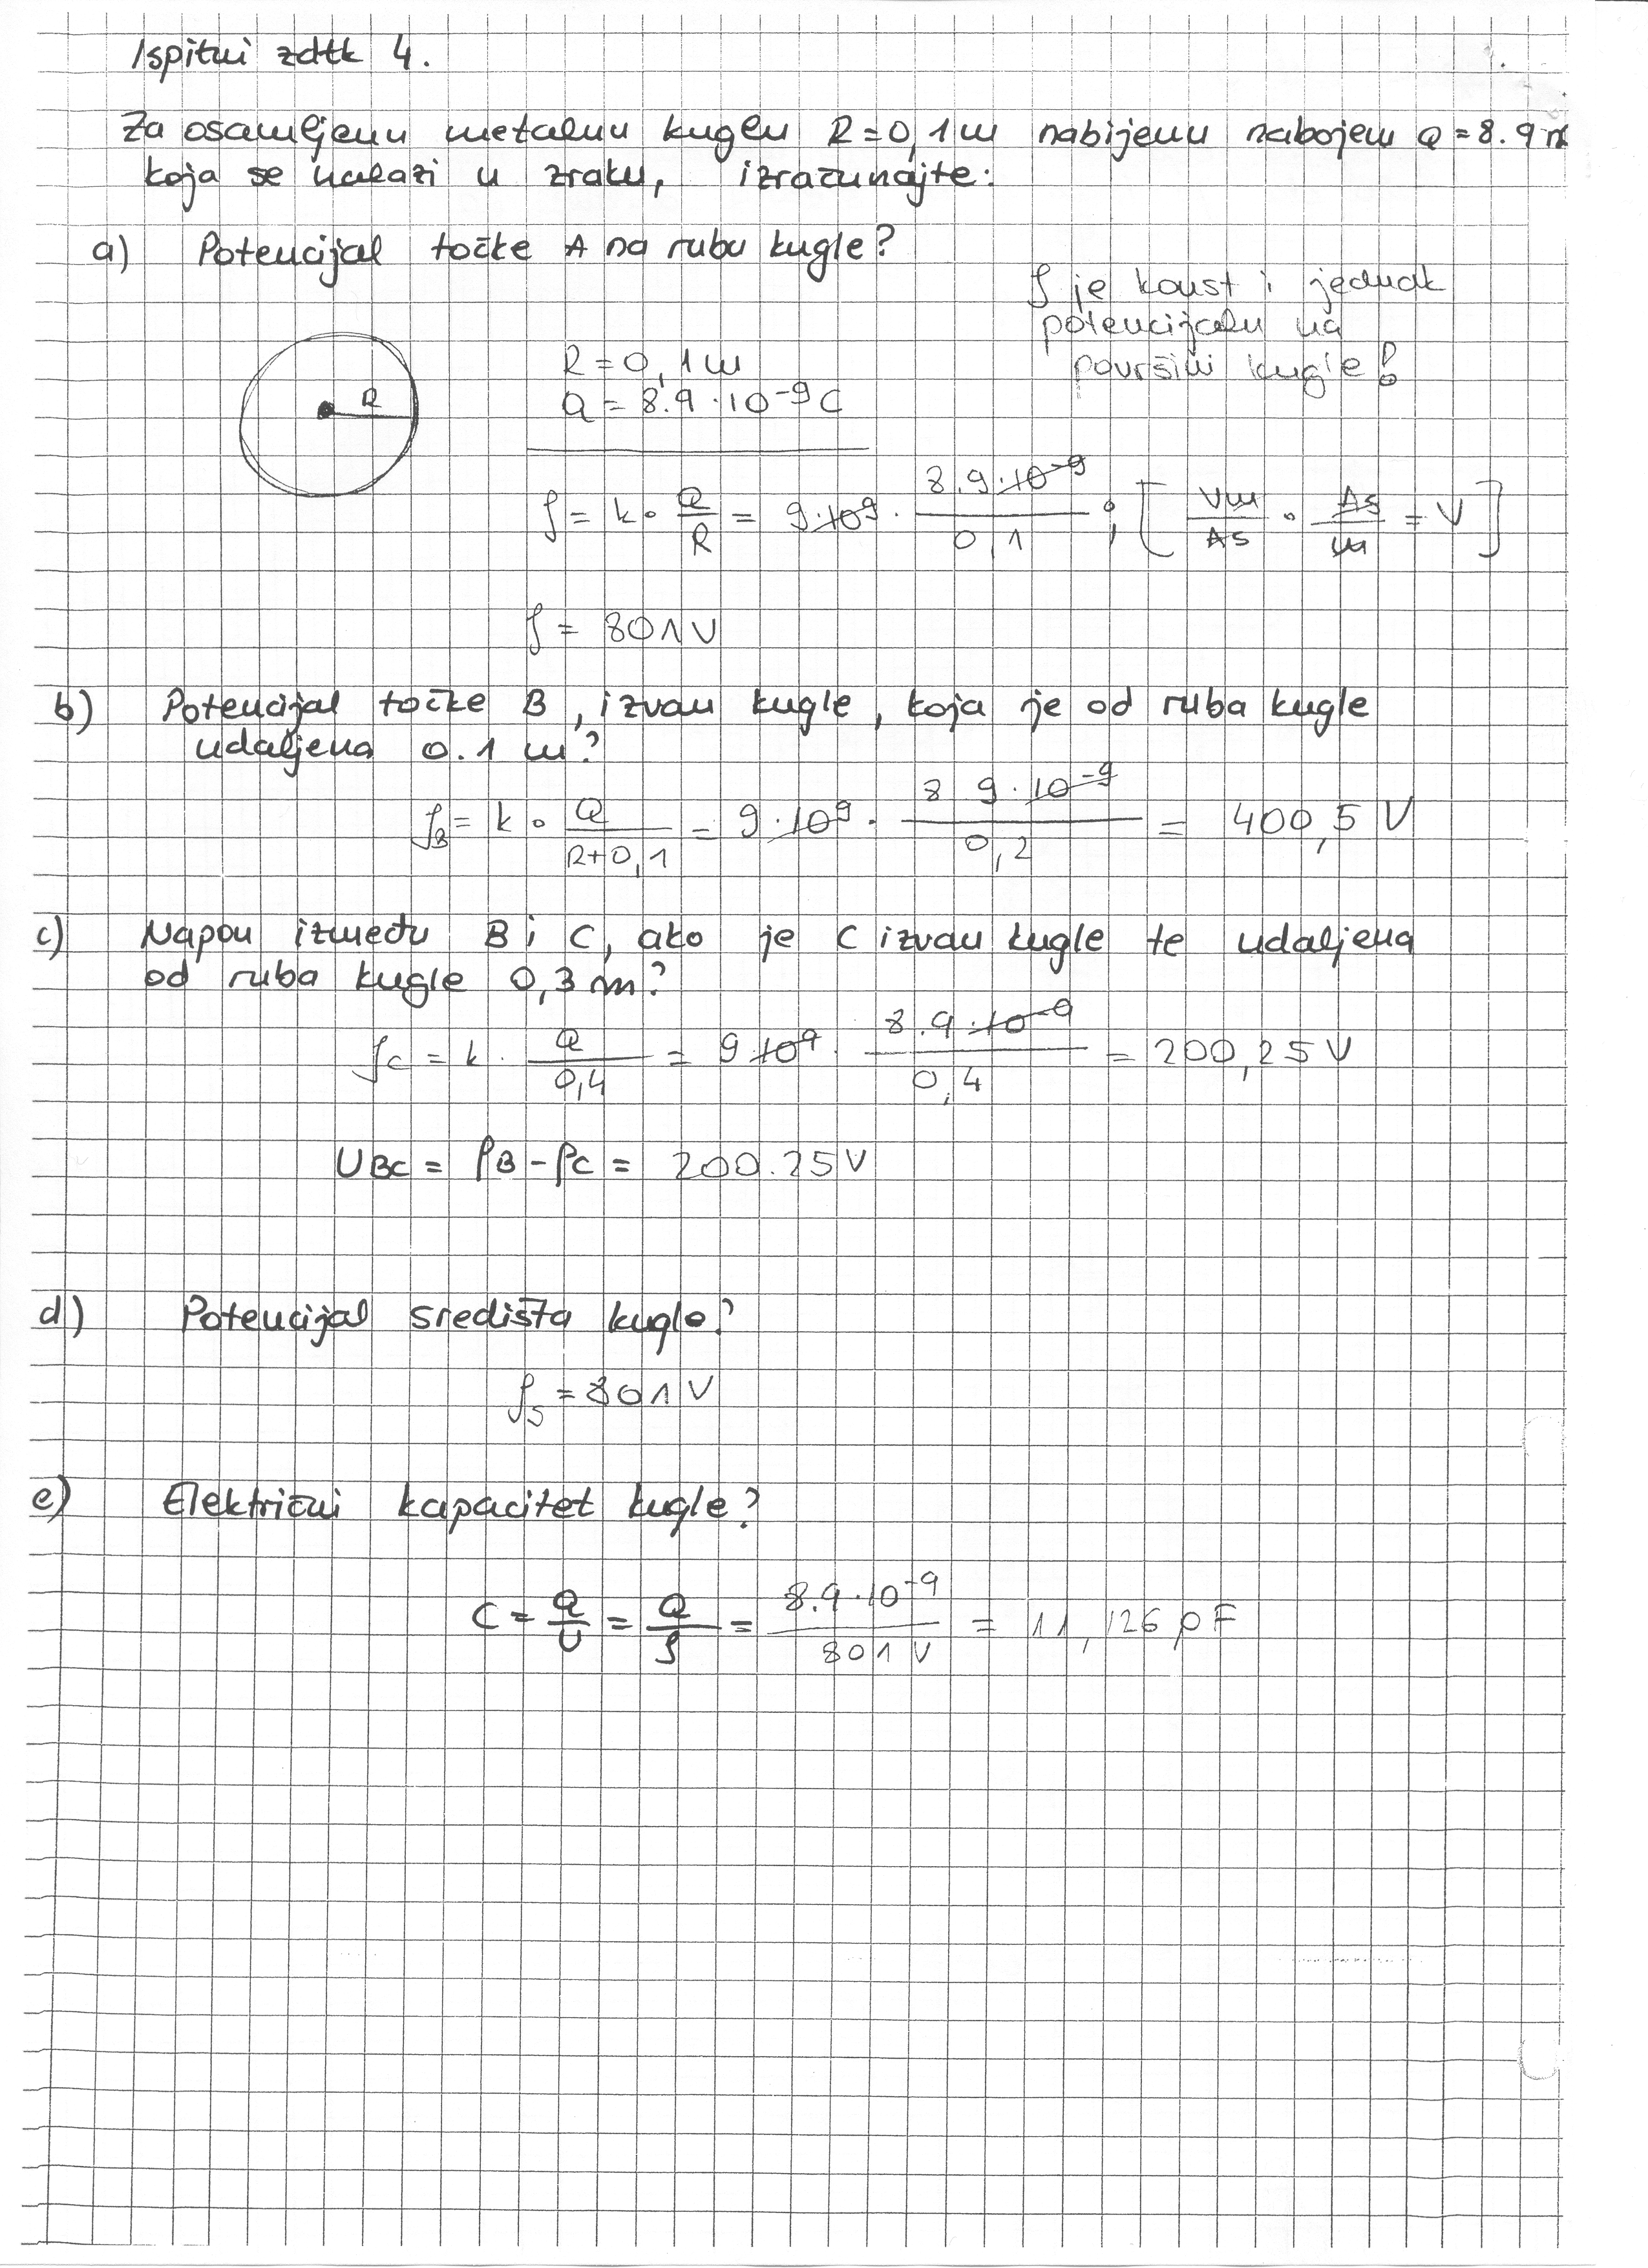 Ispitni zdtk 4.
Za osamljenu metalnu kuglu R=0,1m nabijenu nabojem Q=8.9 n
koja se nalazi u zraku, izračunajte:
a) Potencijal točke A na rubu kugle?
φ je konst i jednak
potencijalu na
površini kugle!
R
R=0,1m
Q=8.9·10⁻⁹C
φ = k · Q/R = 9·10⁹ · 8.9·10⁻⁹/0,1 ; [Vm/As · As/m = V]
φ = 801V
b) Potencijal točke B, izvan kugle, koja je od ruba kugle
udaljena 0.1 m?
φB = k · Q/R+0,1 = 9·10⁹ · 8 9·10⁻⁹/0,2 = 400,5 V
c) Napon između B i C, ako je C izvan kugle te udaljena
od ruba kugle 0,3 m?
φC = k · Q/0,4 = 9·10⁹ · 8.9·10⁻⁹/0,4 = 200,25V
UBC = φB - φC = 200.25V
d) Potencijal središta kugle?
φS = 801V
e) Električni kapacitet kugle?
C = Q/U = Q/φ = 8.9·10⁻⁹/801V = 11,126 pF